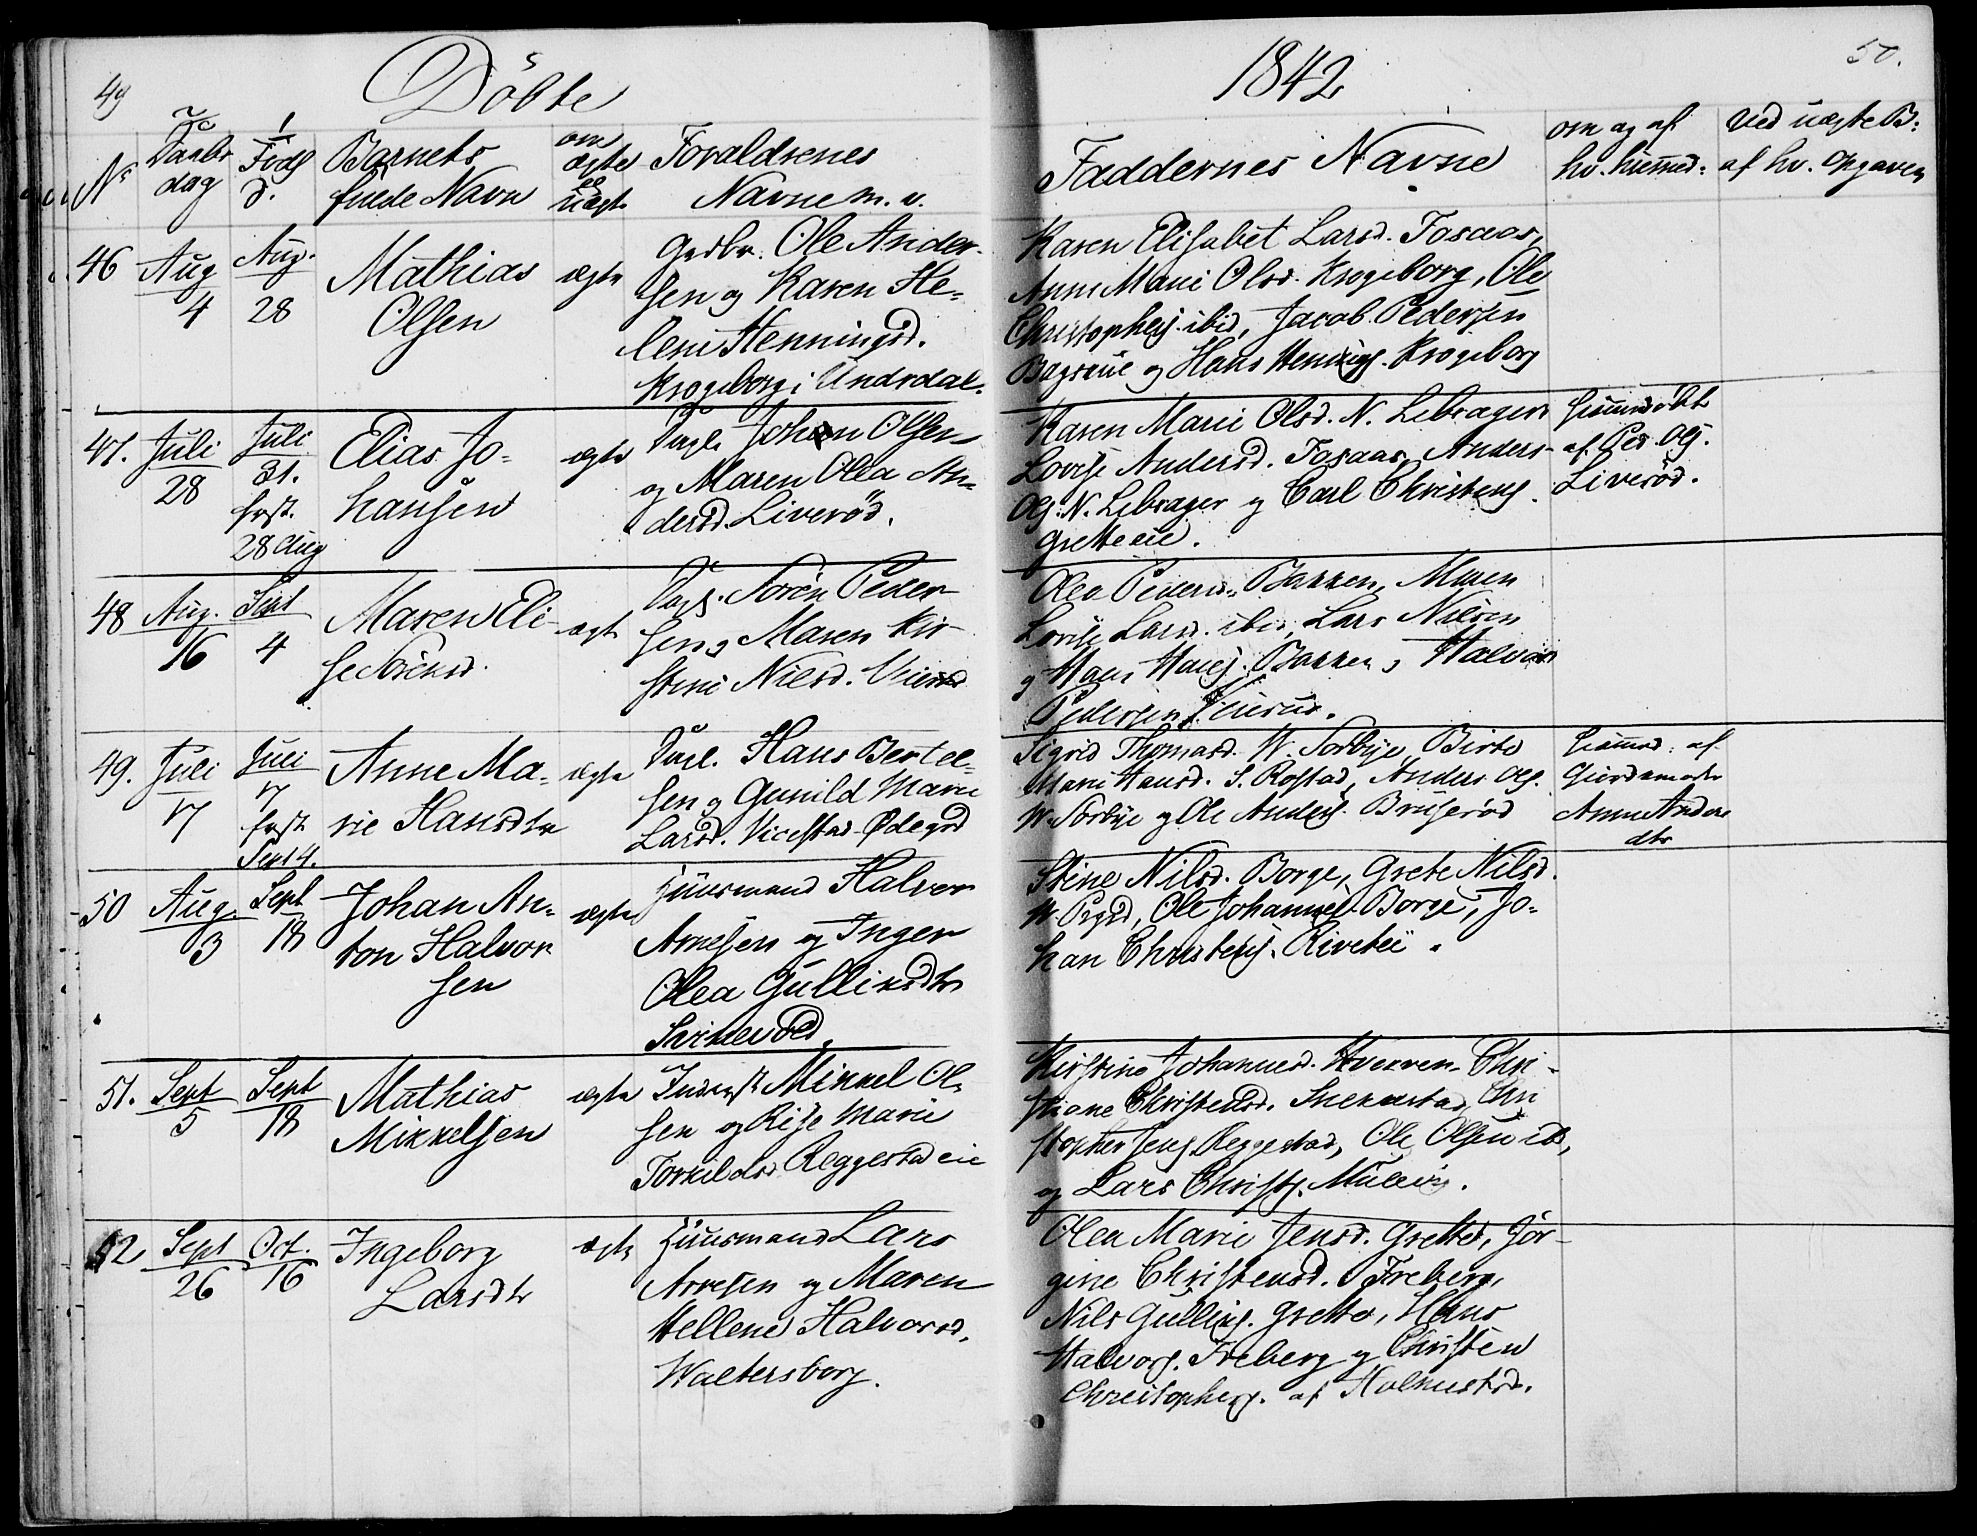 49
Döbte
1842
50.
Nr
Daabs
dag
Føds
d.
Barnets
fulde Navn
om
ægte
el
uægt.
Forældrenes
Navne m. v.
Faddernes Navne
om og af
hv. hiemmed:
Ved uægte B:
af hv. Opgaven
46
Aug
4
Aug.
28
Mathias
Olsen
ægte
Grdbr. Ole Ander-
sen og Karen He-
lene Henningsd.
Krogeborg i Undrdal.
Karen Elisabet Larsd. Fosaas,
Anne Marie Olsd. Krogeborg, Ole
Christophers. ibid, Jacob Pedersen
og Hans Hennings. Krogeborg
47.
Juli
28
Juli
31.
frst.
28 Aug
Elias Jo-
hansen
ægte
Johan Olsen
og Maren Olea An-
dersd. Liverød.
Karen Marie Olsd. N. Lebrager
Lovise Andersd. Fosaas, Anders
Ols. N. Lebrager og Carl Christens.
Gretteeie.
hiemmedøbt
af Ped. Ols.
Liverød.
48
Aug.
16
Sept
4
Maren Eli-
se Sörensd.
ægte
Sören Peder-
sen og Maren Kir-
stine Nilsd.
Olea Pedersd. Bakken, Maren
Lovise Larsd. ibid, Lars Nilsen
og Hans Hans. Bakken, Halvor
Pedersen
49.
Juli
17
Juli
17
frst.
Sept 4.
Anne Ma-
rie Hansdtr
ægte
Hans Bertel-
sen og Gunild Marie
Larsd. Vicestad Ødegrd
Sigrid Thomasd. W. Sörbye, Birte
Marie Hansd. S. Rostad, Anders Ols.
W. Sörbye og Ole Anders. Bruserød
hiemmed: af
Giordemoder
Anne Anders
dtr
50
Aug.
3
Sept
18
Johan An-
ton Halvor
sen
ægte
Huusmand Halvor
Arnesen og Inger
Olea Gulliksdtr
Stine Nilsd. Borge, Grete Nilsd.
Ole Johannes. Borge, Jo-
han Christens.
51.
Sept
5
Sept
18
Mathias
Mikkelsen
ægte
Inderst Mikkel Ol-
sen og Rise Marie
Torkildsd. Reggestadeie
Kirstine Johannesd. Hverven, Chri-
stiane Christensd. Snekkestad, Chri
stopher Jens. Reggestad, Ole Olsen ib,
og Lars Christs.
52
Sept
26
Oct.
16
Ingeborg
Larsdtr
ægte
Huusmand Lars
Arvesen og Maren
Hellene Halvorsd.
Waltersborg.
Olea Marie Jensd. Grette, Jör-
gine Christensd. Freberg,
Nils Gulliks. Grette, Hans
Halvors. Freberg og Christen
Christophers. af Holmestrd.